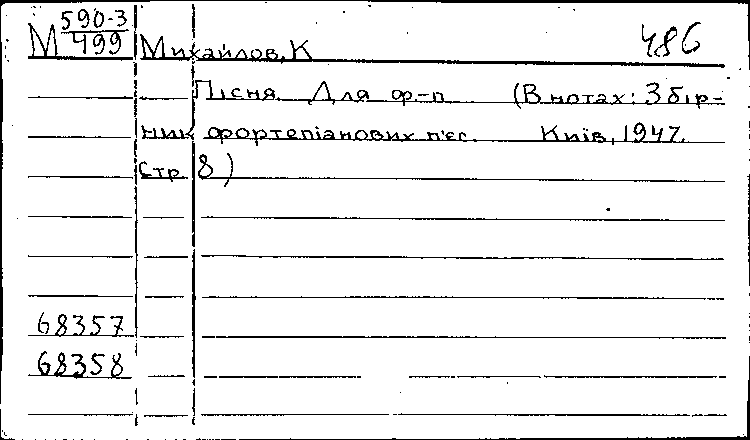 М 590-3
499 Михайлов, К 486
Пісня. Для ф-п (В нотах: Збір-
ник фортепіанових п'єс. Київ, 1947.
стр 8)
68357
68358